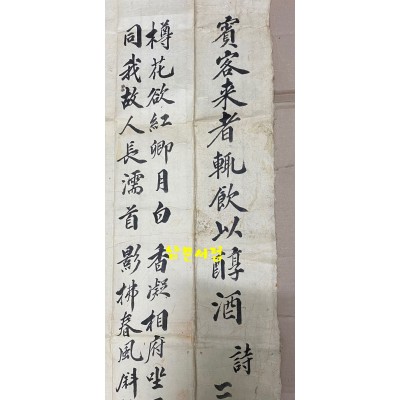 賓客来者輒飮以醇酒 詩 二
樽花欲紅卿月白 香凝相府坐
同我故人長濡首 影拂春風斜
남문서점